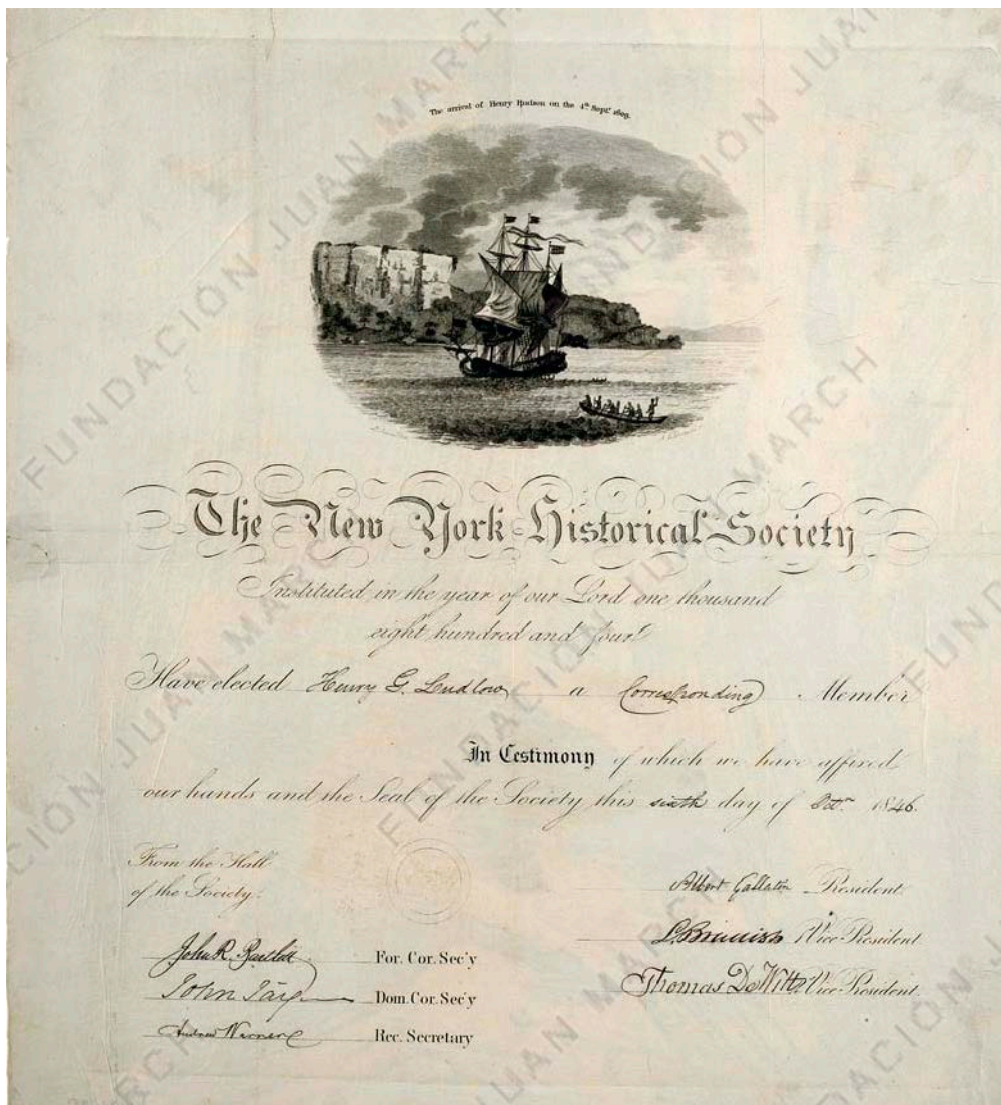 The arrival of Henry Hudson on the 4th Septr 1609.
The New York Historical Society
Instituted in the year of our Lord one thousand
eight hundred and four
Have elected Henry G. Ludlow a Corresponding Member
In Testimony of which we have affixed
our hands and the Seal of the Society this sixth day of 1846.
From the Hall
of the Society.
Albert Gallatin President
Vice President
Thomas De Witt Vice President
John R. Bartlett For. Cor. Sec'y
John Jay Dom. Cor. Sec'y
Andrew Warner Rec. Secretary
FUNDACIÓN JUAN MARCH